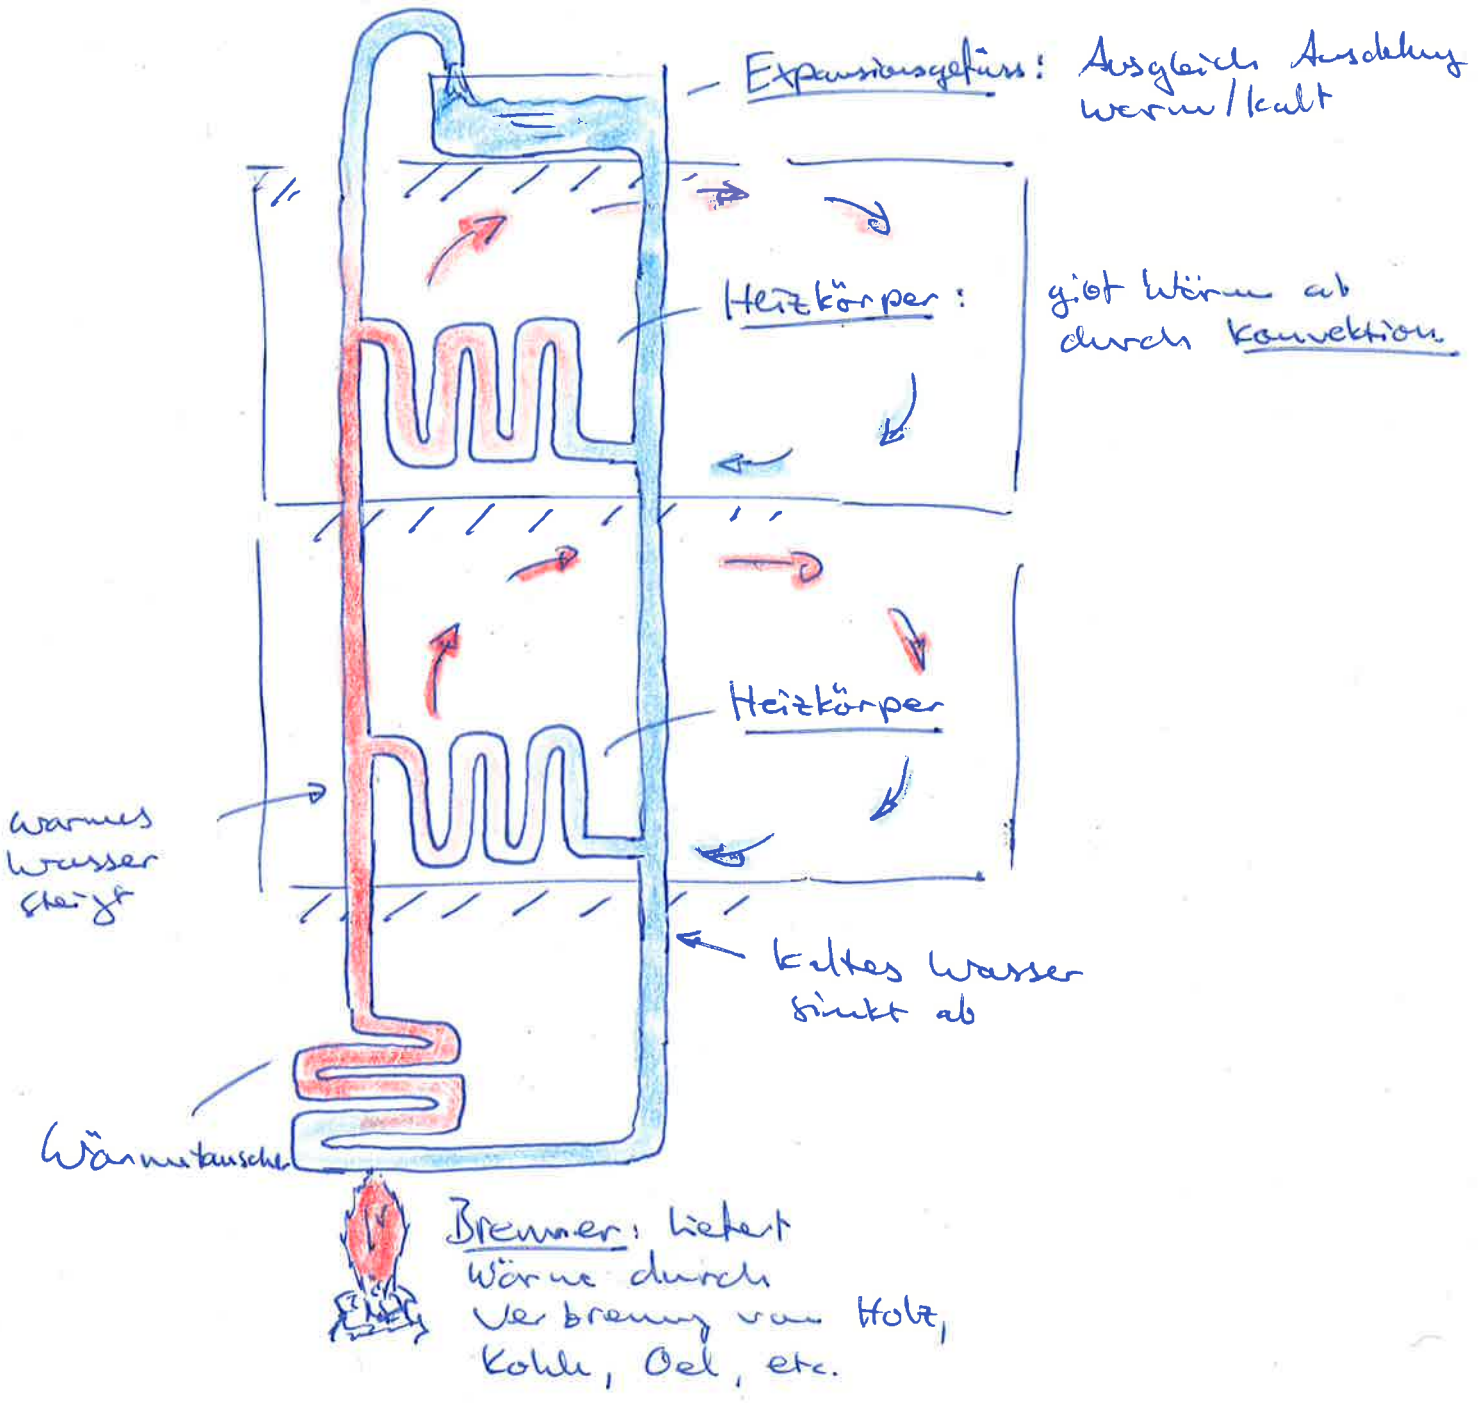 Expansionsgefäss: Ausgleich Ausdehnung
warm/kalt
Heizkörper: gibt Wärme ab
durch Konvektion
Heizkörper
warmes
Wasser
steigt
Kaltes Wasser
sinkt ab
Wärmetauscher
Brenner: liefert
Wärme durch
Verbrennung von Holz,
Kohle, Oel, etc.